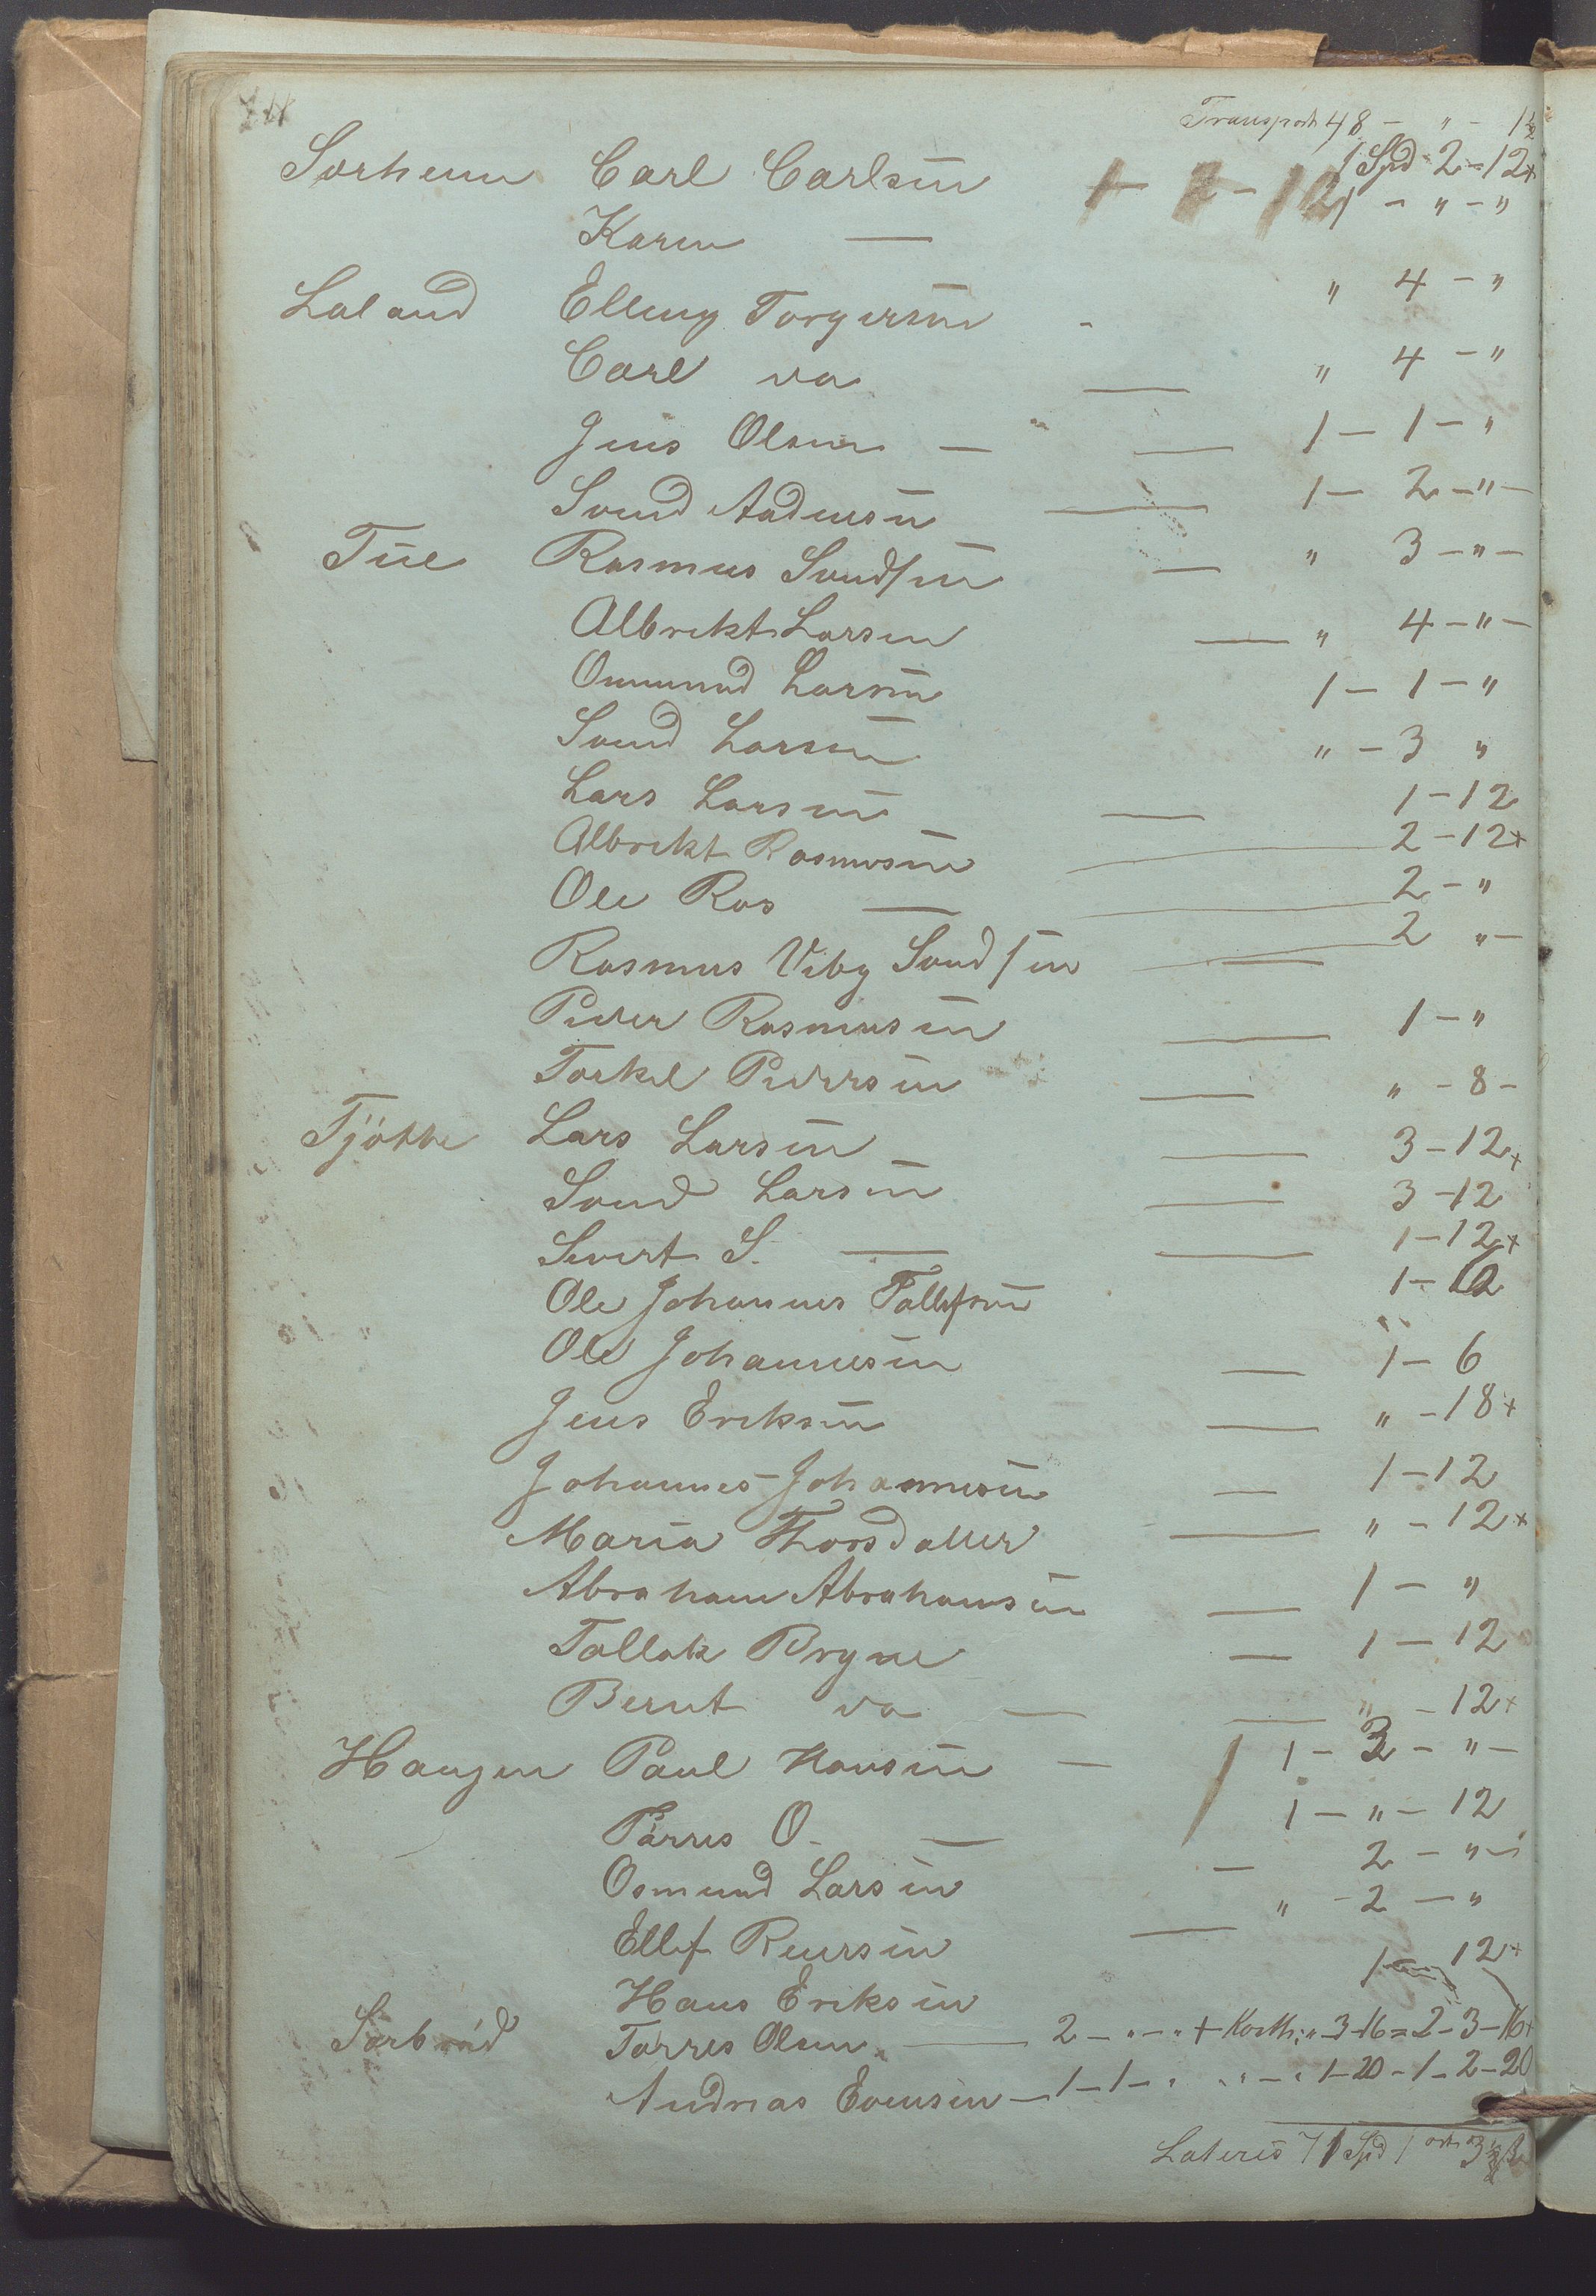 Transport 48 - " - 1½
Sørheim Carl Carlsen 1 Spd 2 - 12 +
1 - 2 - 12
Karen — 1 - " - "
Laland Elling Torgersen - " 4 - "
Carl do — " 4 - "
Jens Olsen — — 1 - 1 - "
Svend Aadensen — 1 - 2 - " -
Tue Rasmus Svendsen — " 3 - " -
Albrekt Larsen — " 4 - " -
Ommund Larsen 1 - 1 - "
Svend Larsen " - 3 "
Lars Larsen — 1 - 12
Albrekt Rasmusen — 2 - 12 +
Ole Ras — — 2 - "
Rasmus Viby Svendsen — 2 " -
Peder Rasmusen — 1 - "
Torkel Pedersen — " - 8 -
Tjøtte Lars Larsen — 3 - 12 +
Svend Larsen — 3 - 12
Sivert S. — — 1 - 12 +
Ole Johannes Tollefsen 1 - 12
Ole Johannesen — 1 - 6
Jens Eriksen — " - 18 +
Johannes Johannesen — 1 - 12
Maria Thorsdatter — " - 12 +
Abraham Abrahamsen — 1 - "
Tollak Bryne — 1 - 12
Bernt do — — " - 12 +
Haugen Paul Hansen — 1 - 3 - " -
Tørres O. — 1 - " - 12
Osmund Larsen — 2 - " -
Ellef Reiersen — " - 2 - "
Hans Eriksen 1 - 12 +
Sørbrød Tørres Olsen — 2 - " - " + Korth: " - 3 - 16 = 2 - 3 - 16 +
Andreas Evensen — 1 - 1 - " " " - " 1 - 20 - 1 - 2 - 20
Lateris 71 Spd 1 ort 3½ ß